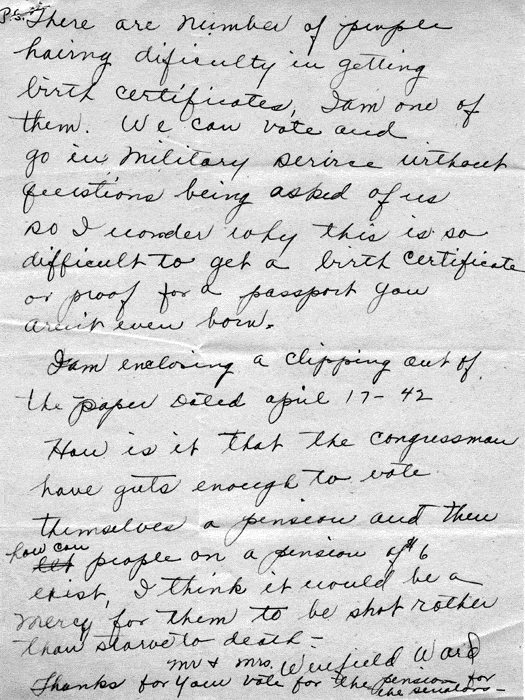 P.S. There are number of people
hairng dificulty in getting
birth certificates, I am one of
them. We can vote and
go in Military serivce without
queistions being asked of us
so I wonder why this is so
difficult to get a birth certificate
or proof for a passport you
aren't even born.
I am enclosing a clipping out of
the paper Dated april 17-42
How is it that the congressman
have guts enough to vote
themselves a pension and then
how can
let people on a pension of $6
exist, I think it would be a
mercy for them to be shot rather
than starve to death -
Mr & Mrs. Winfield Ward
Thanks for your vote for the pension for
the senators -